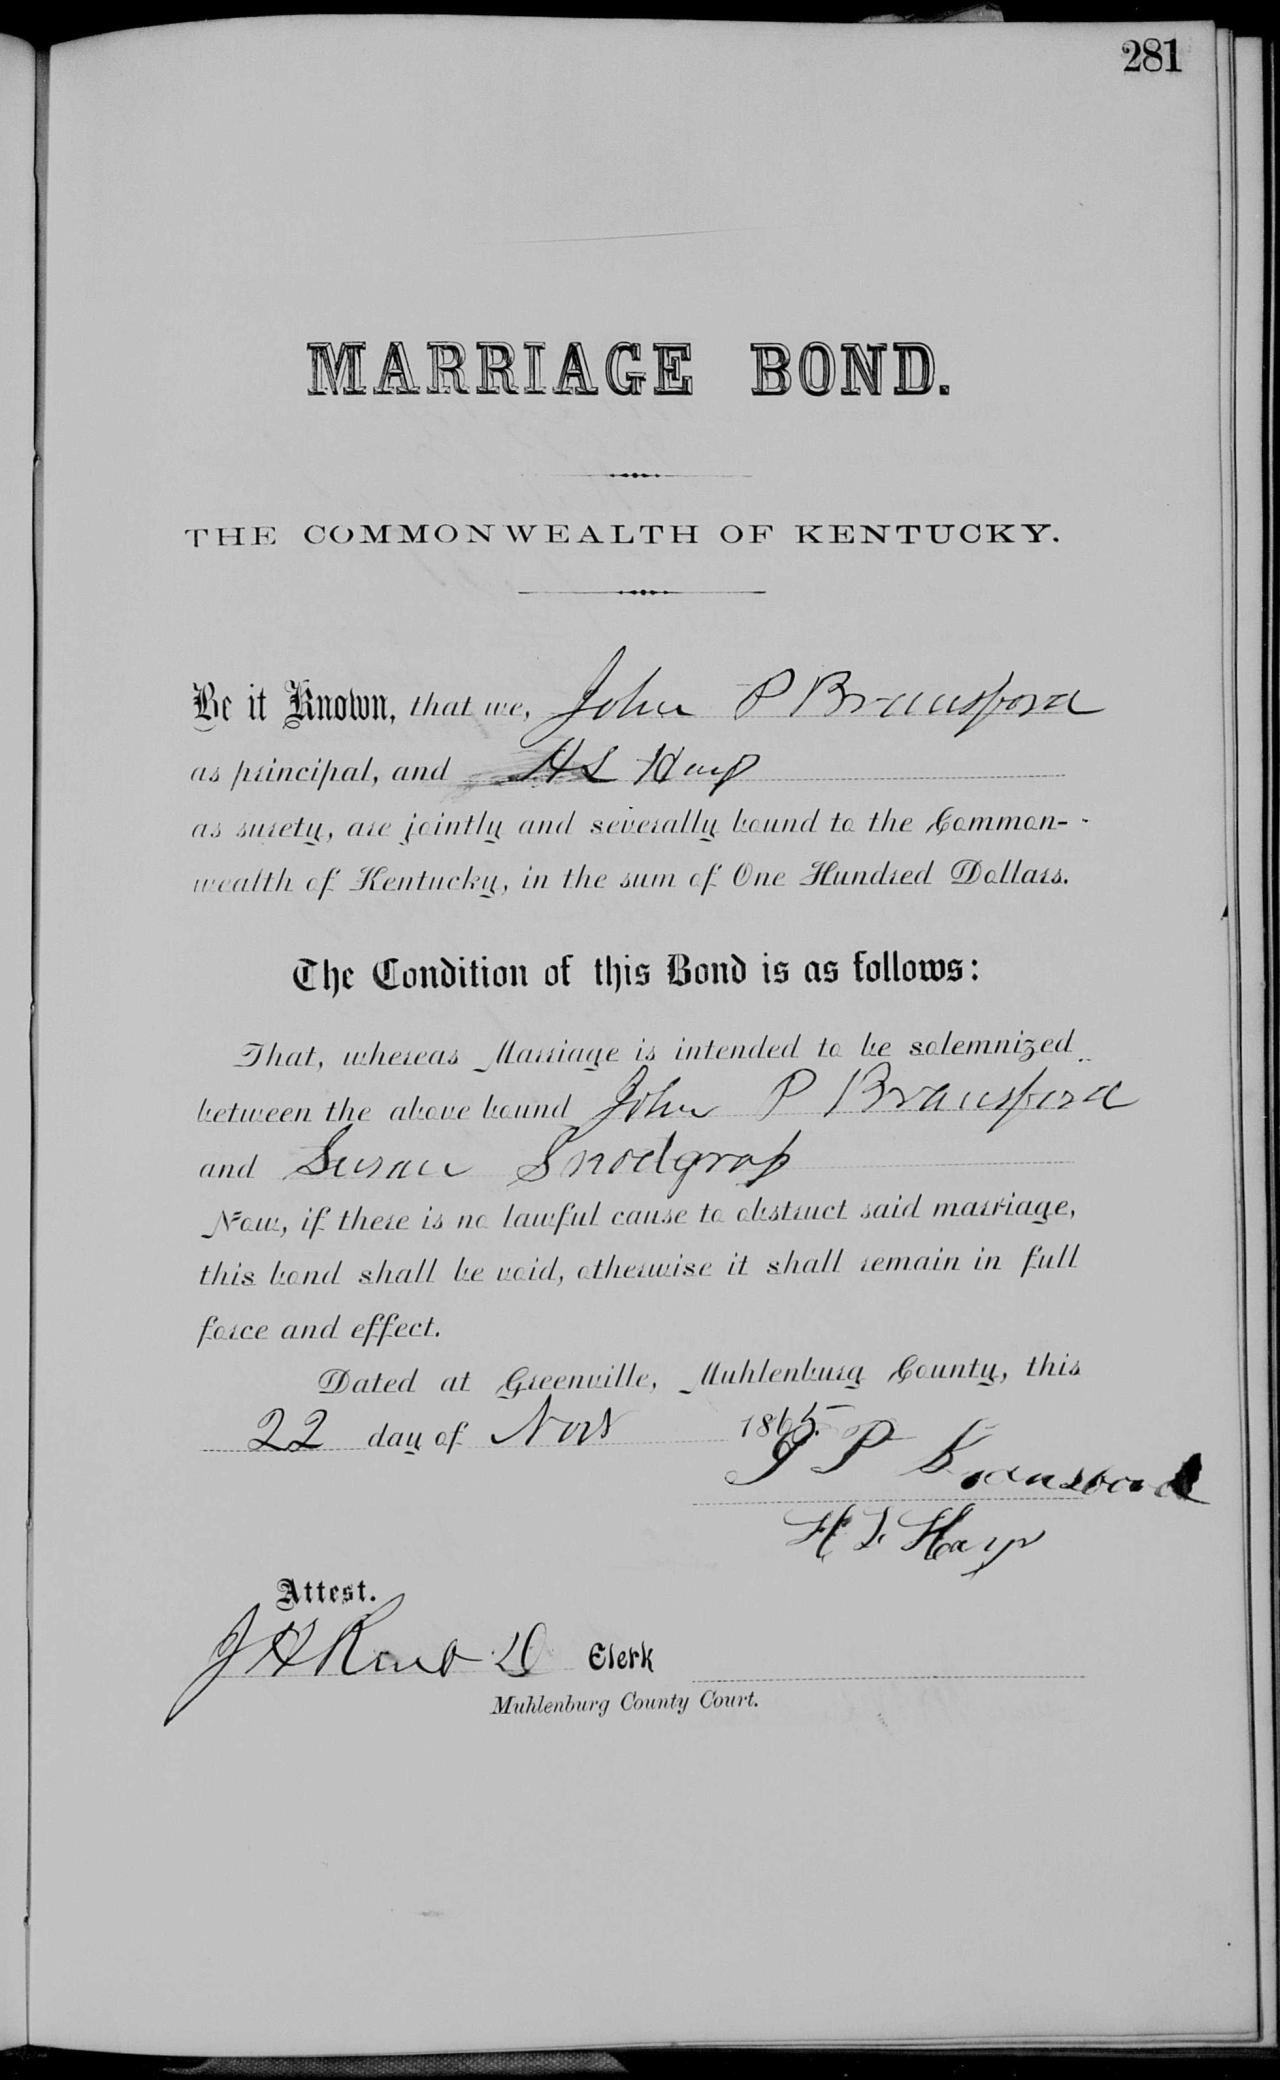 281
MARRIAGE BOND.
THE COMMONWEALTH OF KENTUCKY.
Be it Known, that we, John P Bransford
as principal, and H L Harp
as surety, are jointly and severally bound to the Common-
wealth of Kentucky, in the sum of One Hundred Dollars.
The Condition of this Bond is as follows:
That, whereas Marriage is intended to be solemnized
between the above bound John P Bransford
and Susan Snodgrass
Now, if there is no lawful cause to obstruct said marriage,
this bond shall be void, otherwise it shall remain in full
force and effect.
Dated at Greenville, Muhlenburg County, this
22 day of Nov 1865.
J P Bransford
H L Harp
Attest.
J H Clerk
Muhlenburg County Court.